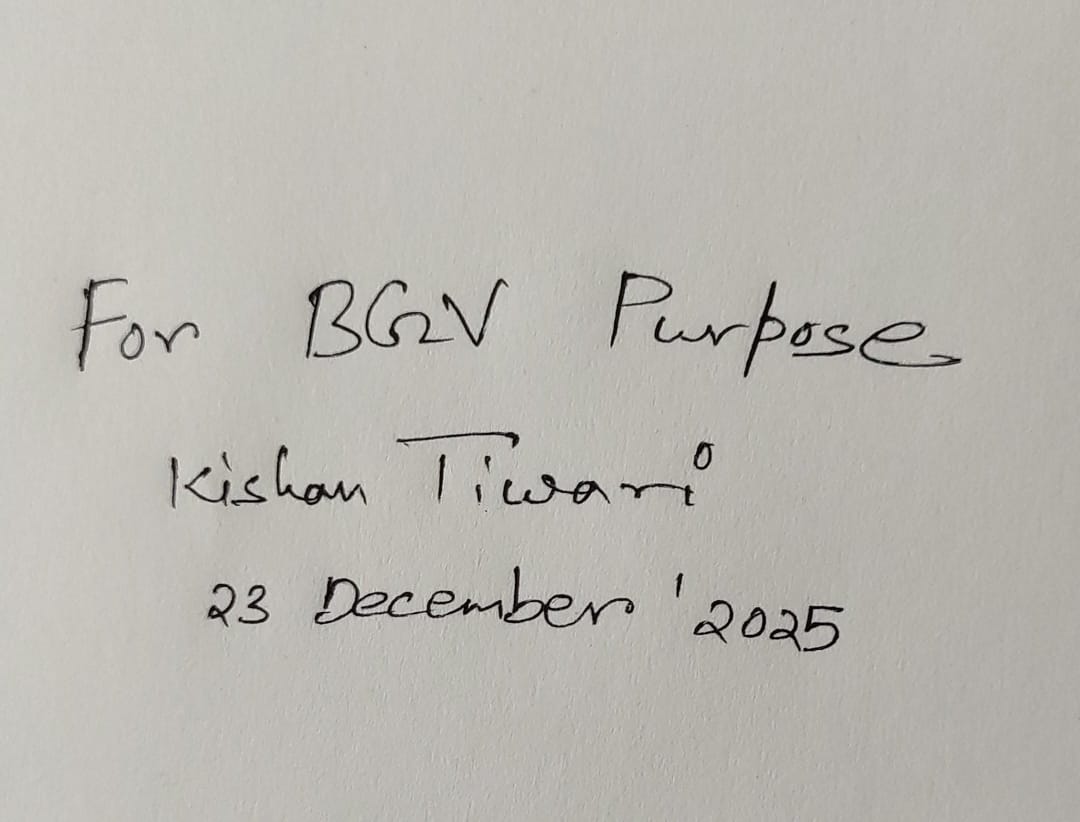 For BGV Purpose
Kishan Tiwari
23 December '2025